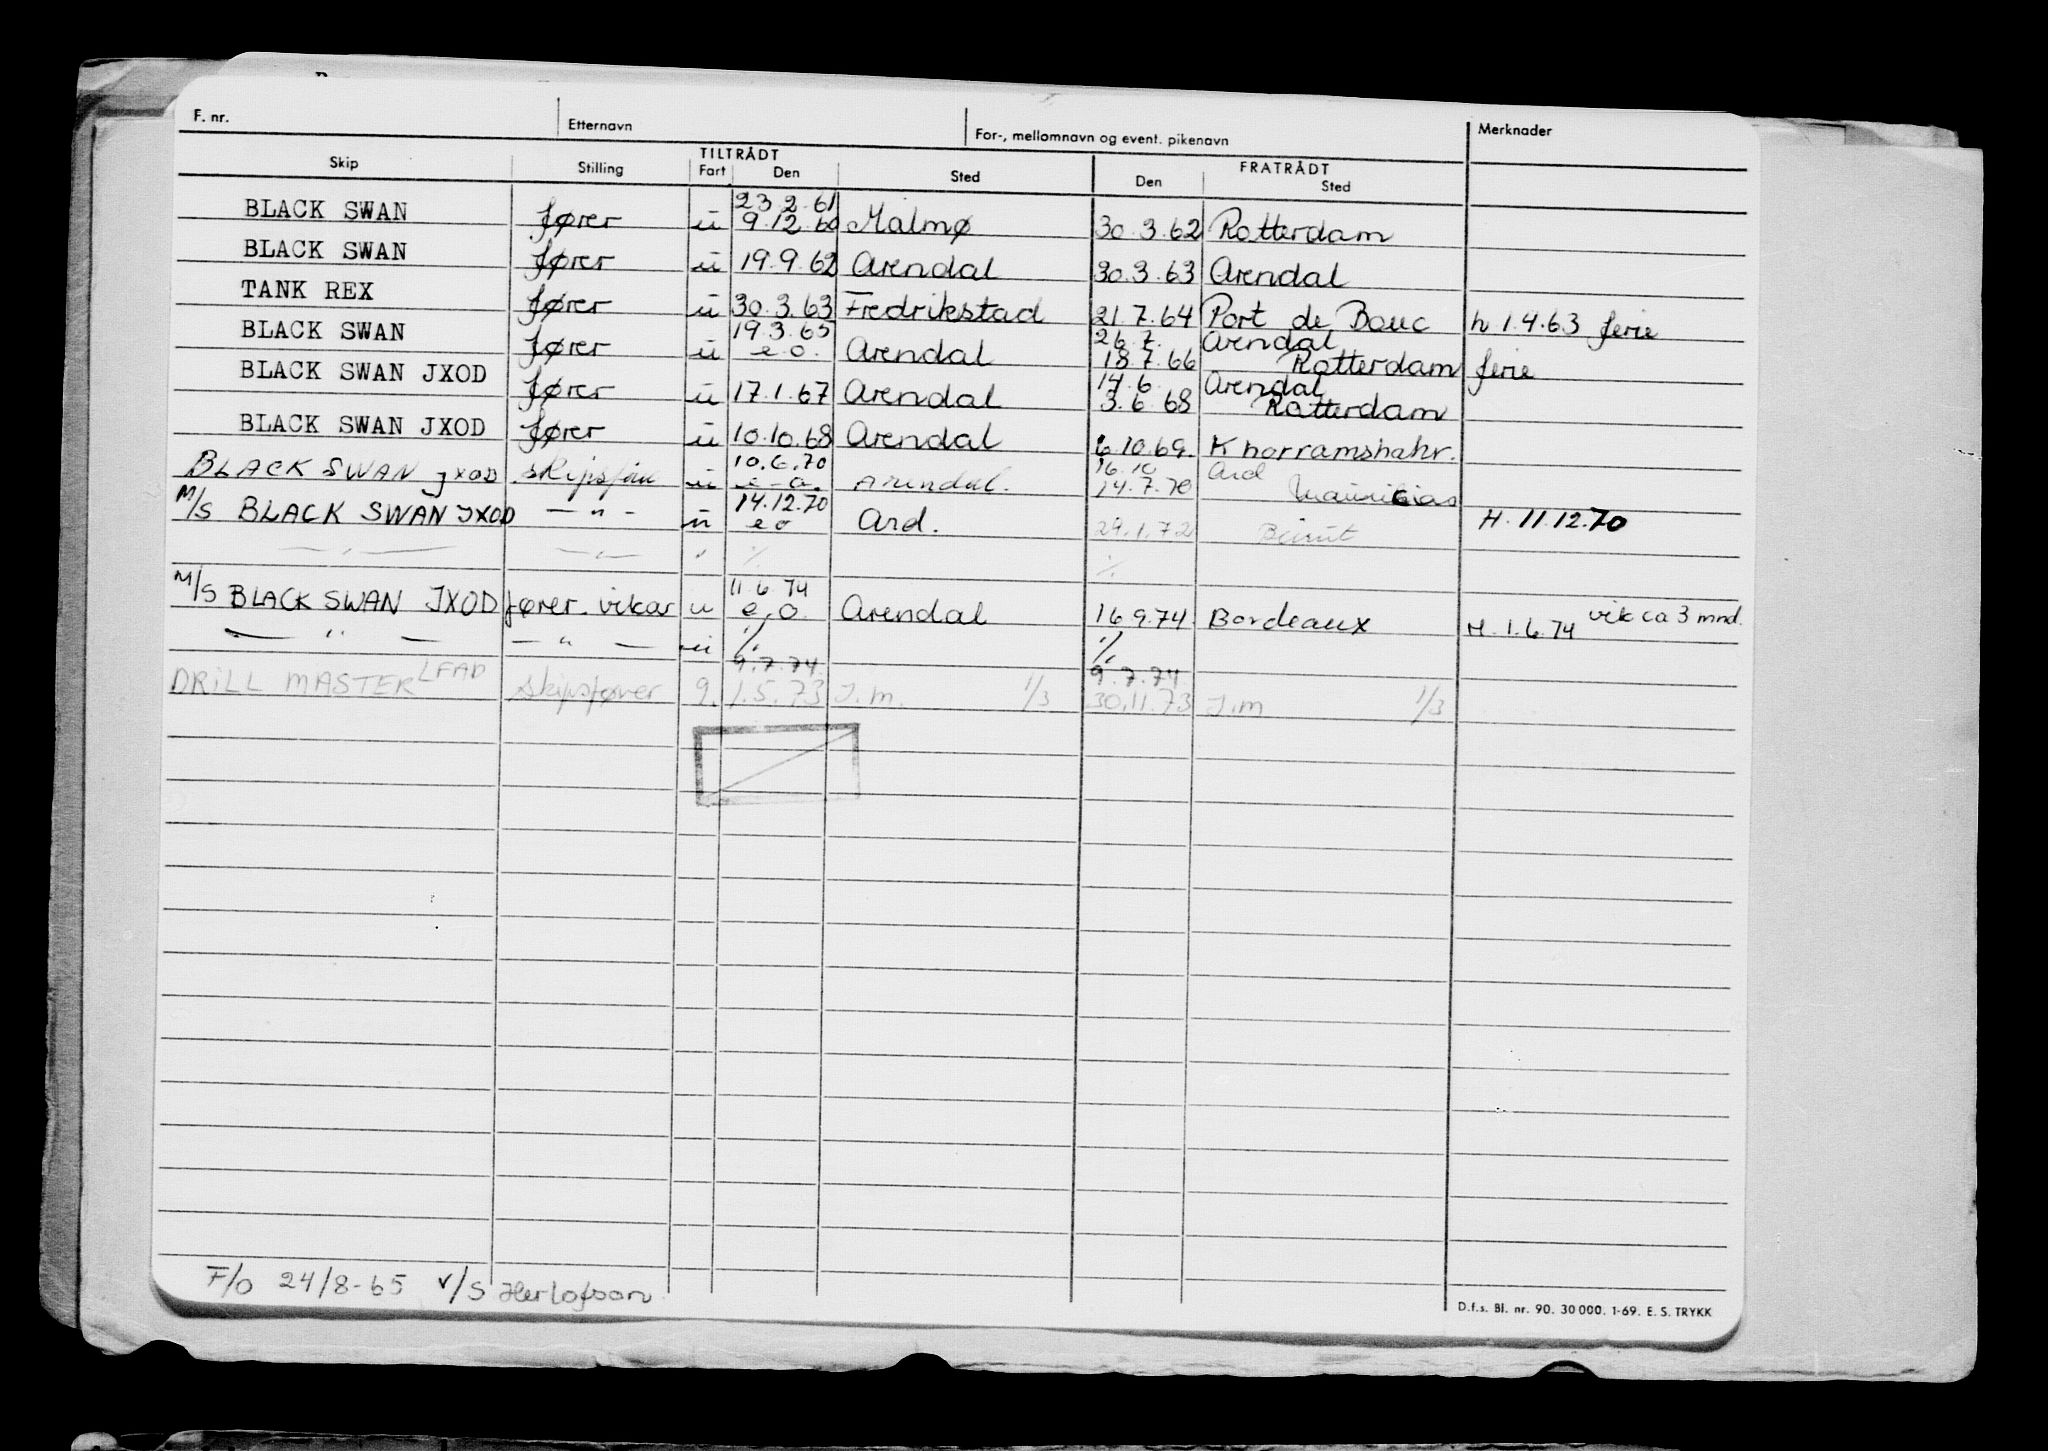 F. nr. Etternavn For-, mellomnavn og event. pikenavn Merknader
TILTRÅDT FRATRÅDT
Skip Stilling Fart Den Sted Den Sted
23.2.61
BLACK SWAN fører u 9.12.60 Malmø 30.3.62 Rotterdam
BLACK SWAN fører u 19.9.62 Arendal 30.3.63 Arendal
TANK REX fører u 30.3.63 Fredrikstad 21.7.64 Port de Bouc h 1.4.63 ferie
19.3.65 26.7. Arendal
BLACK SWAN fører u e.o. Arendal 18.7.66 Rotterdam ferie
14.6. Arendal
BLACK SWAN JXOD fører u 17.1.67 Arendal 3.6.68 Rotterdam
BLACK SWAN JXOD fører u 10.10.68 Arendal 6.10.69. Khorramshahr.
10.6.70 16.10 Ard
BLACK SWAN JXOD u e-o. Arendal. 14.7.70
14.12.70
M/S BLACK SWAN JXOD — " — u e o Ard. 29.1.72 Beirut H. 11.12.70
— " — — " — " ./. ./.
11.6.74
M/S BLACK SWAN JXOD fører. vikar u e.o. Arendal 16.9.74. Bordeaux H. 1.6.74 vik ca 3 mnd.
— " — — " — u ./. ./.
9.7.74. 9.7.74
DRILL MASTER LFAD skipsfører 9. 1.5.73 J.m. 1/3 30.11.73 J.m 1/3
F/O 24/8-65 v/S Herlofson
D.f.s. Bl. nr. 90. 30 000. 1-69. E. S. TRYKK